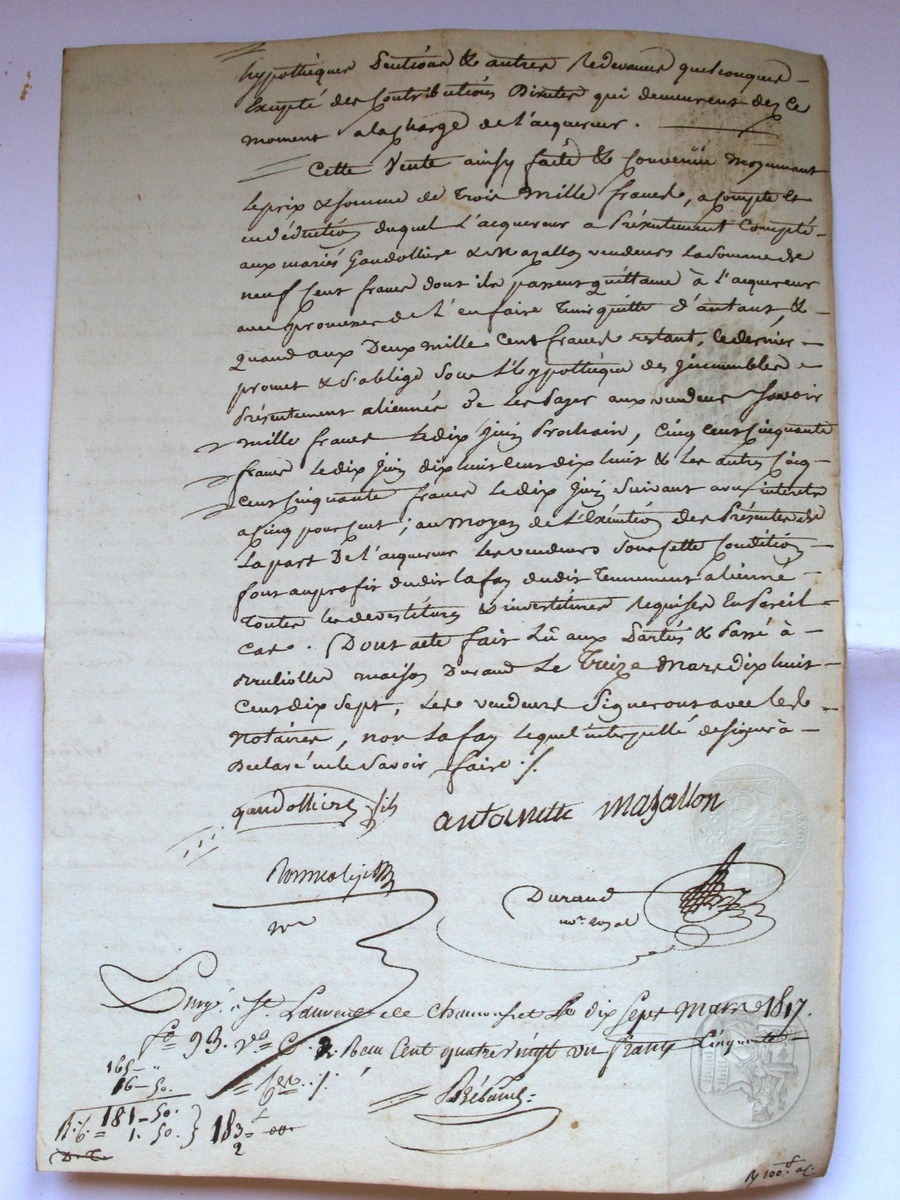 hypothèques Pentions & autres Redevances quelconques -
Excepté des Contributions Directes qui demeurent dez ce
moment a la charge de l'acquereur .
Cette Vente ainsy faite & convenue moyennant
le prix & somme de Trois mille francs, a compte et
en déduction duquel L'acquereur a Présentement Compté
aux mariés Gaudollière & Mazallon vendeurs La Somme de
neuf Cent francs dont ils passent quittance à l'acquereur
avec promesse de L'en faire Tenir quitte d'autant, &
quand aux Deux mille Cent francs restant, le dernier -
promet & S'oblige Sous L'hypothèque des Immeubles
Présentement aliennés de Les Payer aux vendeurs Savoir
mille francs Le dix Juin Prochain, Cinq Cent Cinquante
francs Le dix Juin dix huit Cent dix huit & Les autres Cinq
Cent Cinquante francs Le dix Juin Suivant avec interets
a Cinq pour Cent ; au Moyen de L'Exécution des Présentes de
La part De l'acquereur Les vendeurs Sous Cette Condition
font au profit dudit Lafay dudit Tennement alienné
Toutes les devestitures & investitures Requises En Pareil
Cas . Dont acte fait Lû aux Parties & Passé à -
maison Durand Le Treize Mars dix huit
Cent dix Sept, Les vendeurs Signeront avec les
Notaires, non Lafay Lequel interpellé de signer à -
Déclaré ne le Savoir faire ./.
gaudolliere fils
antoinette mazallon
nre
Durand
nore. royal
Enrgé. à St. Laurent de Chamousset Le dix Sept Mars 1817.
fo 93. Vo C. 2. Reçu Cent quatre vingt un francs Cinquante
165 - "
16 - 50.
181 - 50.
1. 50. } 183
2